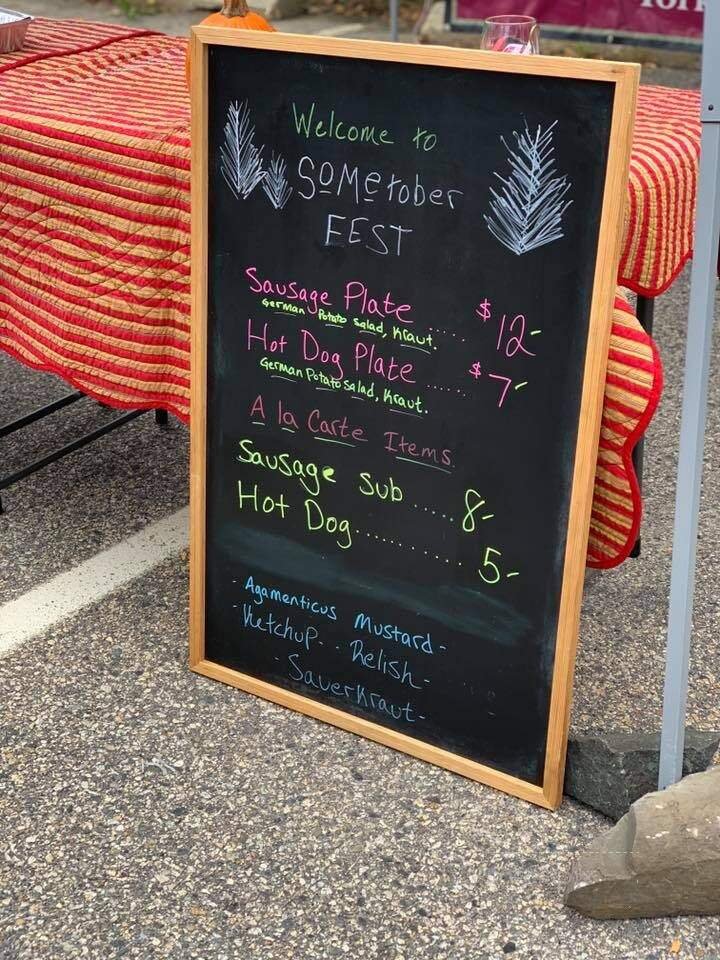 Welcome to
SOMEtober
FEST
Sausage Plate ..... $12-
German Potato Salad, Kraut.
Hot Dog Plate ...... $7-
German Potato Salad, Kraut.
A la Carte Items
Sausage Sub ..... 8-
Hot Dog ............ 5-
- Agamenticus Mustard-
- Ketchup - - Relish -
- Sauerkraut -